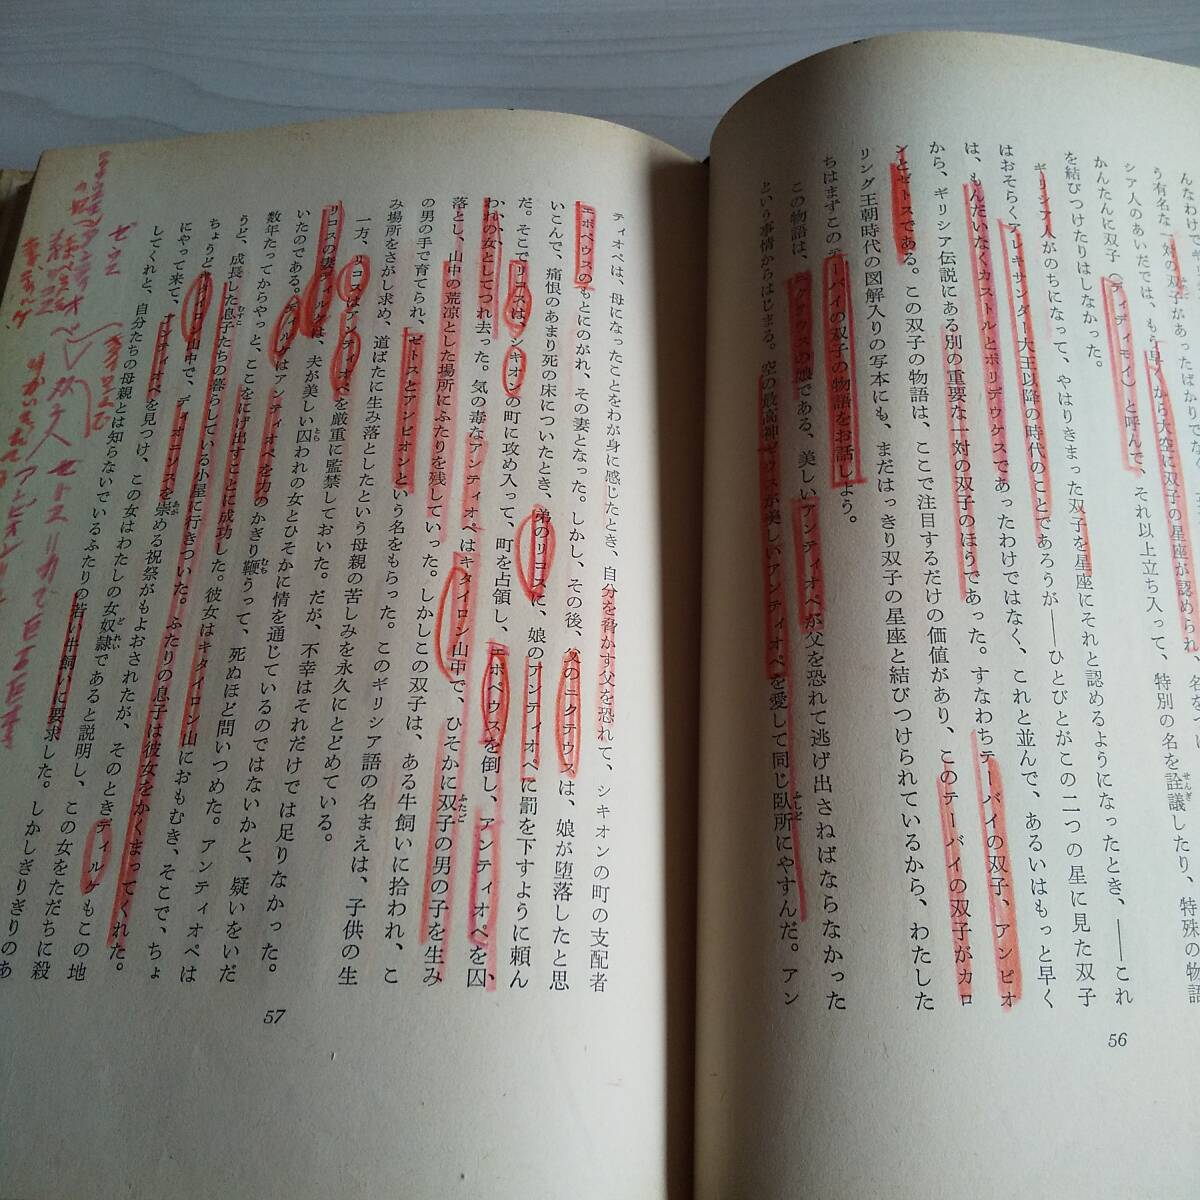 う有名な一対の双子があったばかりでな
シア人のあいだでは、もう早くから大空に双子の星座が認められ
かんたんに双子(ディディモイ)と呼んで、それ以上立ち入って、特別の名を詮議したり、特殊の物語
を結びつけたりはしなかった。
ギリシア人がのちになって、やはりきまった双子を星座にそれと認めるようになったとき、――これ
はおそらくアレキサンダー大王以降の時代のことであろうが――ひとびとがこの二つの星に見た双子
は、もんだいなくカストルとポリデウケスであったわけではなく、これと並んで、あるいはもっと早く
から、ギリシア伝説にある別の重要な一対の双子のほうであった。すなわちテーバイの双子、アンピオ
ンとゼトスである。この双子の物語は、ここで注目するだけの価値があり、このテーバイの双子がカロ
リング王朝時代の図解入りの写本にも、まだはっきり双子の星座と結びつけられているから、わたした
ちはまずこのテーバイの双子の物語をお話しよう。
この物語は、ニクテウスの娘である、美しいアンティオペが父を恐れて逃げ出さねばならなかった
という事情からはじまる。空の最高神ゼウスが美しいアンティオペを愛して同じ臥所にやすんだ。アン
56
ティオペは、母になったことをわが身に感じたとき、自分を脅かす父を恐れて、シキオンの町の支配者
エポペウスのもとにのがれ、その妻となった。しかし、その後、父のニクテウスは、娘が堕落したと思
いこんで、痛恨のあまり死の床についたとき、弟のリコスに、娘のアンティオペに罰を下すように頼ん
だ。そこでリコスは、シキオンの町に攻め入って、町を占領し、エポペウスを倒し、アンティオペを囚
われの女としてつれ去った。気の毒なアンティオペはキタイロン山中で、ひそかに双子の男の子を生み
落とし、山中の荒凉とした場所にふたりを残していった。しかしこの双子は、ある牛飼いに拾われ、こ
の男の手で育てられ、ゼトスとアンピオンという名をもらった。このギリシア語の名まえは、子供の生
み場所をさがし求め、道ばたに生み落としたという母親の苦しみを永久にとどめている。
一方、リコスはアンティオペを厳重に監禁しておいた。だが、不幸はそれだけでは足りなかった。
リコスの妻ディルケは、夫が美しい囚われの女とひそかに情を通じているのではないかと、疑いをいだ
いたのである。ディルケはアンティオペを力のかぎり鞭うって、死ぬほど問いつめた。アンティオペは
数年たってからやっと、ここをにげ出すことに成功した。彼女はキタイロン山におもむき、そこで、ちょ
うど、成長した息子たちの暮らしている小屋に行きついた。ふたりの息子は彼女をかくまってくれた。
ちょうどキタイロン山中で、ディオニソスを崇める祝祭がもよおされたが、そのときディルケもこの地
にやって来て、アンティオペを見つけ、この女はわたしの女奴隷であると説明し、この女をただちに殺
してくれと、自分たちの母親とは知らないでいるふたりの若い牛飼いに要求した。しかしぎりぎりのあ
57
ゼウス